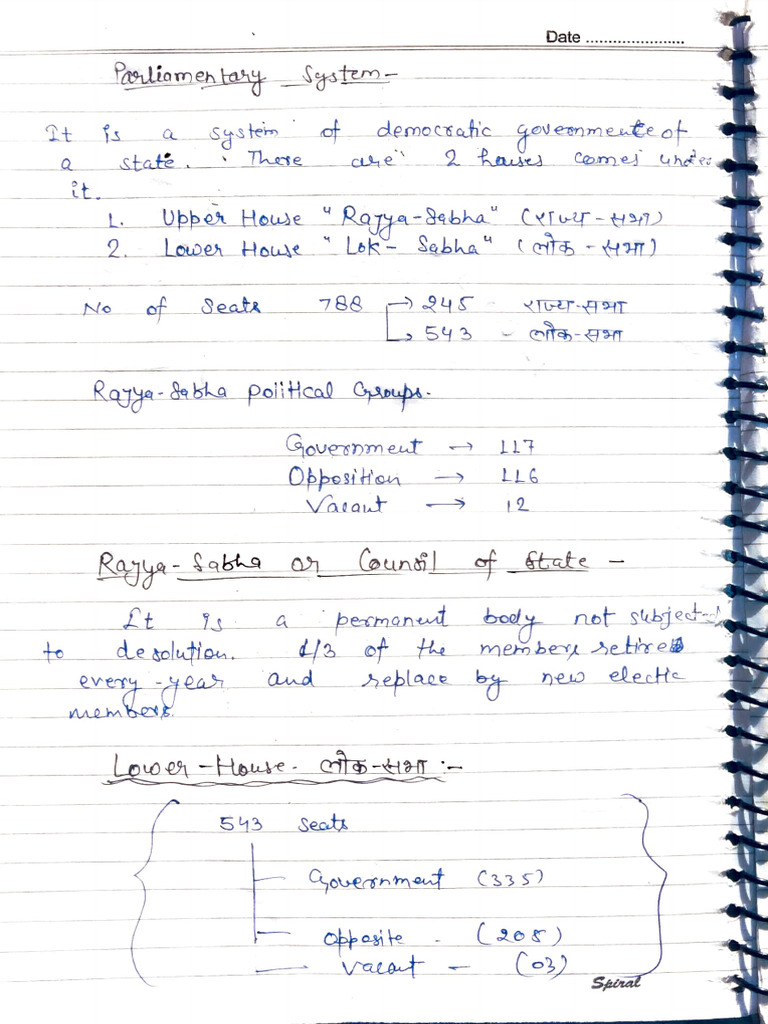 Date ......................
Parliamentary System -
It is a system of democratic governmente of
a state. There are 2 houses comes under
it.
1. Upper House "Rajya-Sabha" (राज्य-सभा)
2. Lower House "Lok-Sabha" (लोक-सभा)
No of Seats 788 → 245 - राज्य-सभा
→ 543 - लोक-सभा
Rajya-Sabha political Groups.
Government → 117
Opposition → 116
Vacant → 12
Rajya-Sabha or Counsil of State -
It is a permanent body not subject-
to desolution. 1/3 of the members retire
every-year and replace by new electic
members.
Lower-House. लोक-सभा :-
543 Seats
Government (335)
Opposite - (205)
Vacant - (03)
Spiral